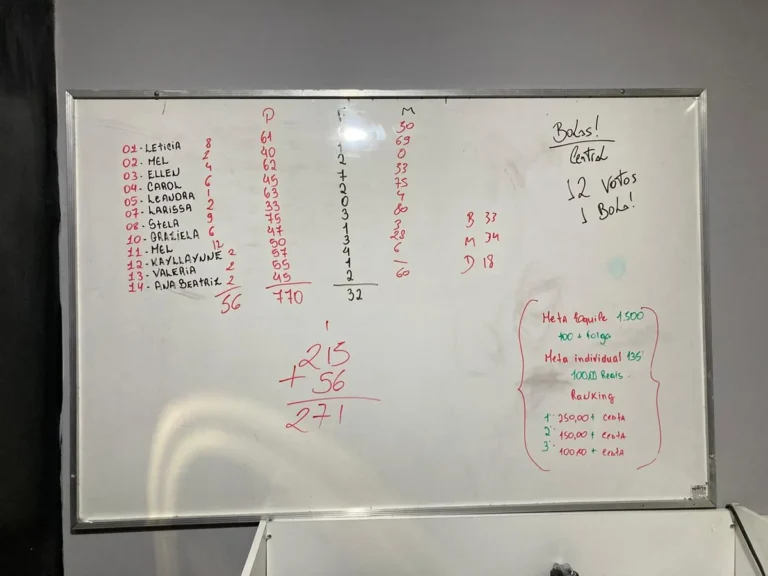 P M
01- LETICIA 8 61 1 50
02- MEL 2 40 1 69
03- ELLEN 4 62 2 0
04- CAROL 6 45 7 33
05- LEANDRA 1 63 2 75
07- LARISSA 2 33 0 4
08- STELA 9 75 3 80
10- GRAZIELA 6 47 1 3
11- MEL 12 50 3 28
12- KAYLLAYNNE 2 57 4 6
13- VALERIA 2 55 1 –
14- ANA BEATRIZ 2 45 2 60
56 770 32
B 33
M 34
D 18
1
215
+ 56
271
Bolas!
Central
12 Votos
1 Bola!
Meta Equipe 1.500
100 + folga
Meta individual 135
100,00 Reais
Ranking
1° 250,00 + cesta
2° 150,00 + cesta
3° 100,00 + cesta